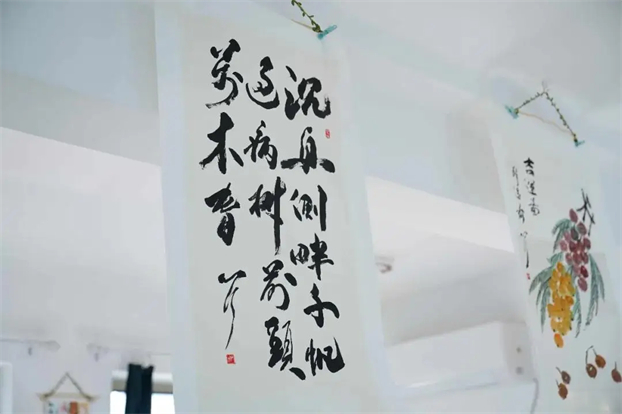 沉舟侧畔千帆
过病树前頭
萬木春